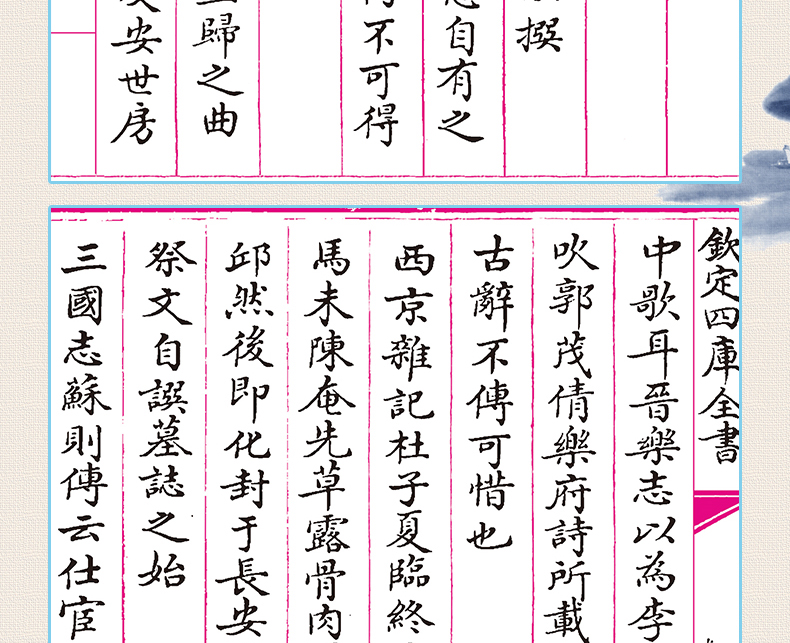 撰
自有之
不可得
歸之曲
安世房
欽定四庫全書
中歌耳晉樂志以為李
吹郭茂倩樂府詩所載
古辭不傳可惜也
西京雜記杜子夏臨終
馬未陳奄先草露骨肉
邱然後即化封于長安
祭文自譔墓誌之始
三國志蘇則傳云仕宦